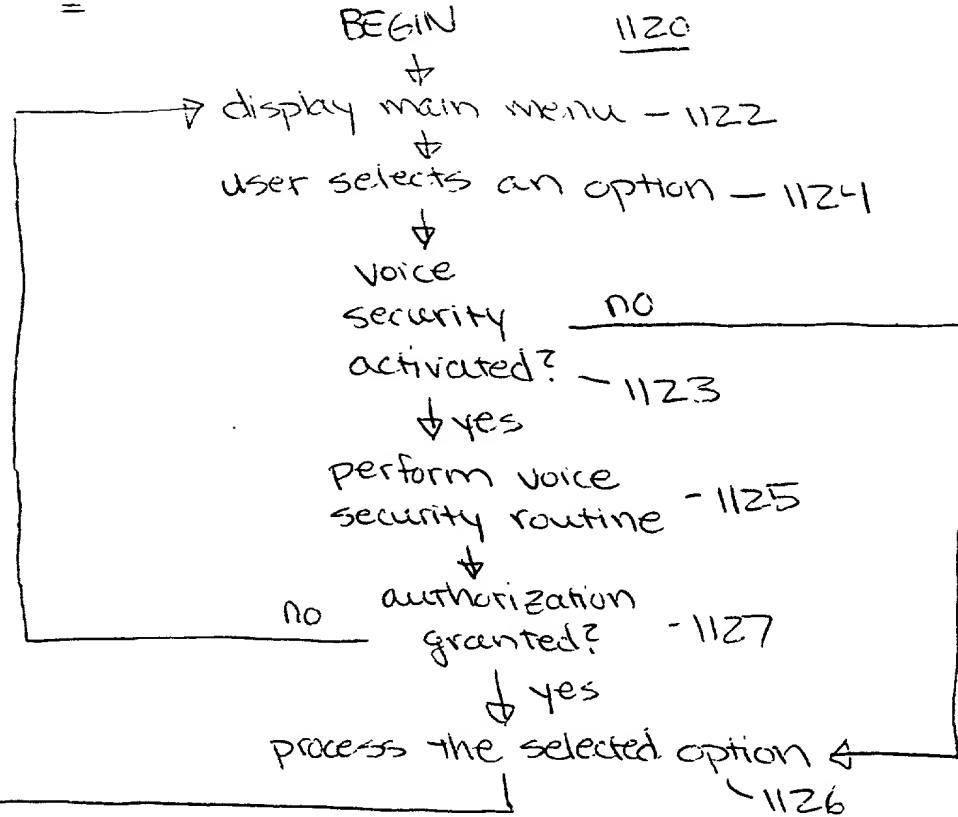 BEGIN 1120
display main menu - 1122
user selects an option - 1124
voice
security no
activated? - 1123
yes
perform voice
security routine - 1125
authorization
no granted? - 1127
yes
process the selected option
- 1126